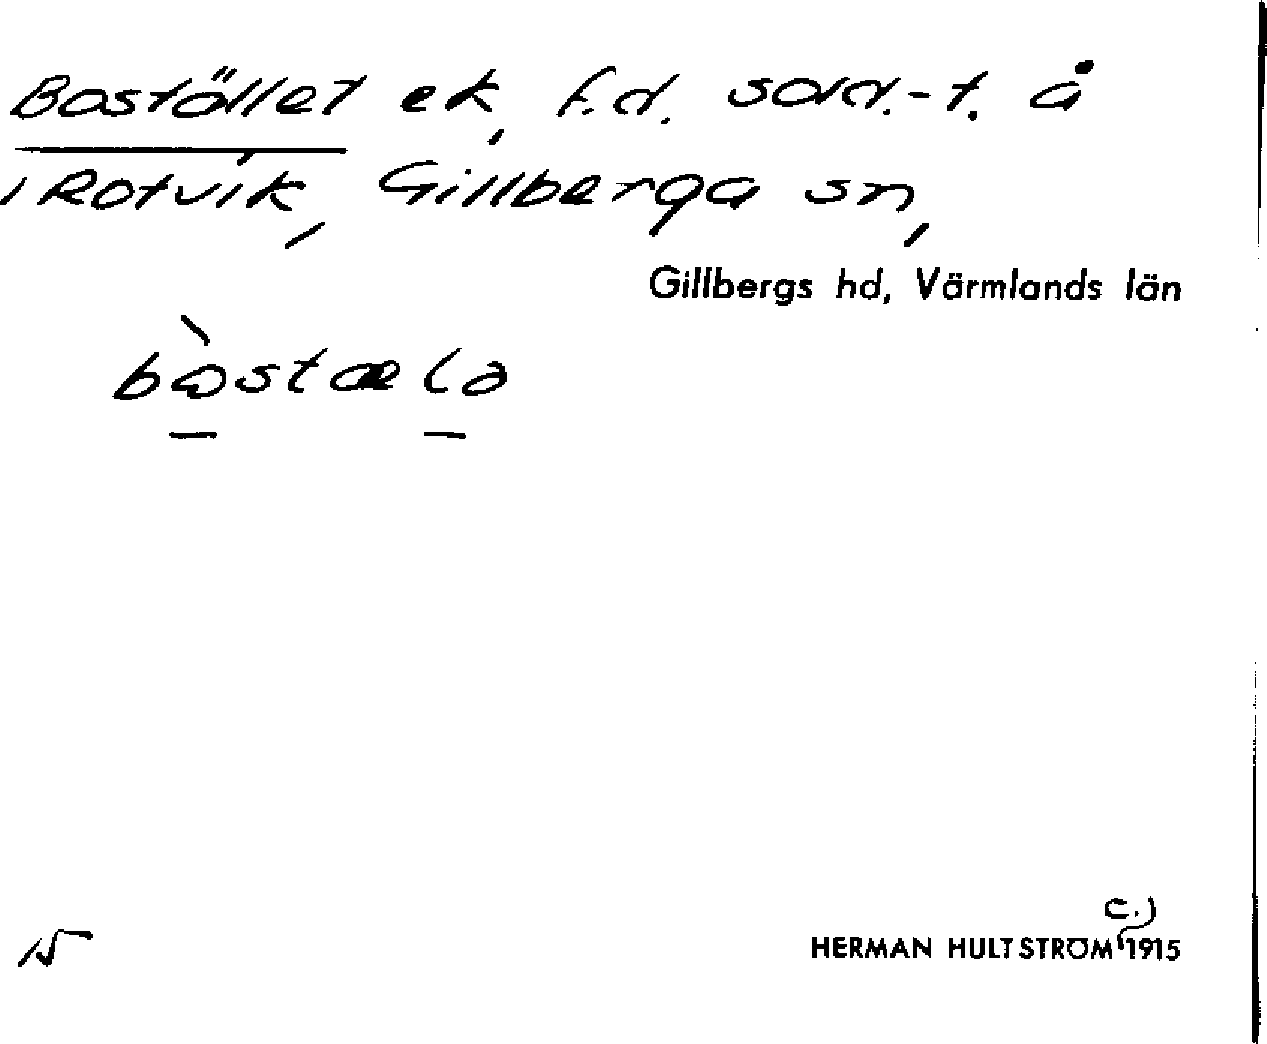 Bostället ek, f.d. sold.-t. å
i Rotvik, Gillberga sn,
Gillbergs hd, Värmlands län
bòstæla
15
c.)
HERMAN HULTSTRÖM 1915